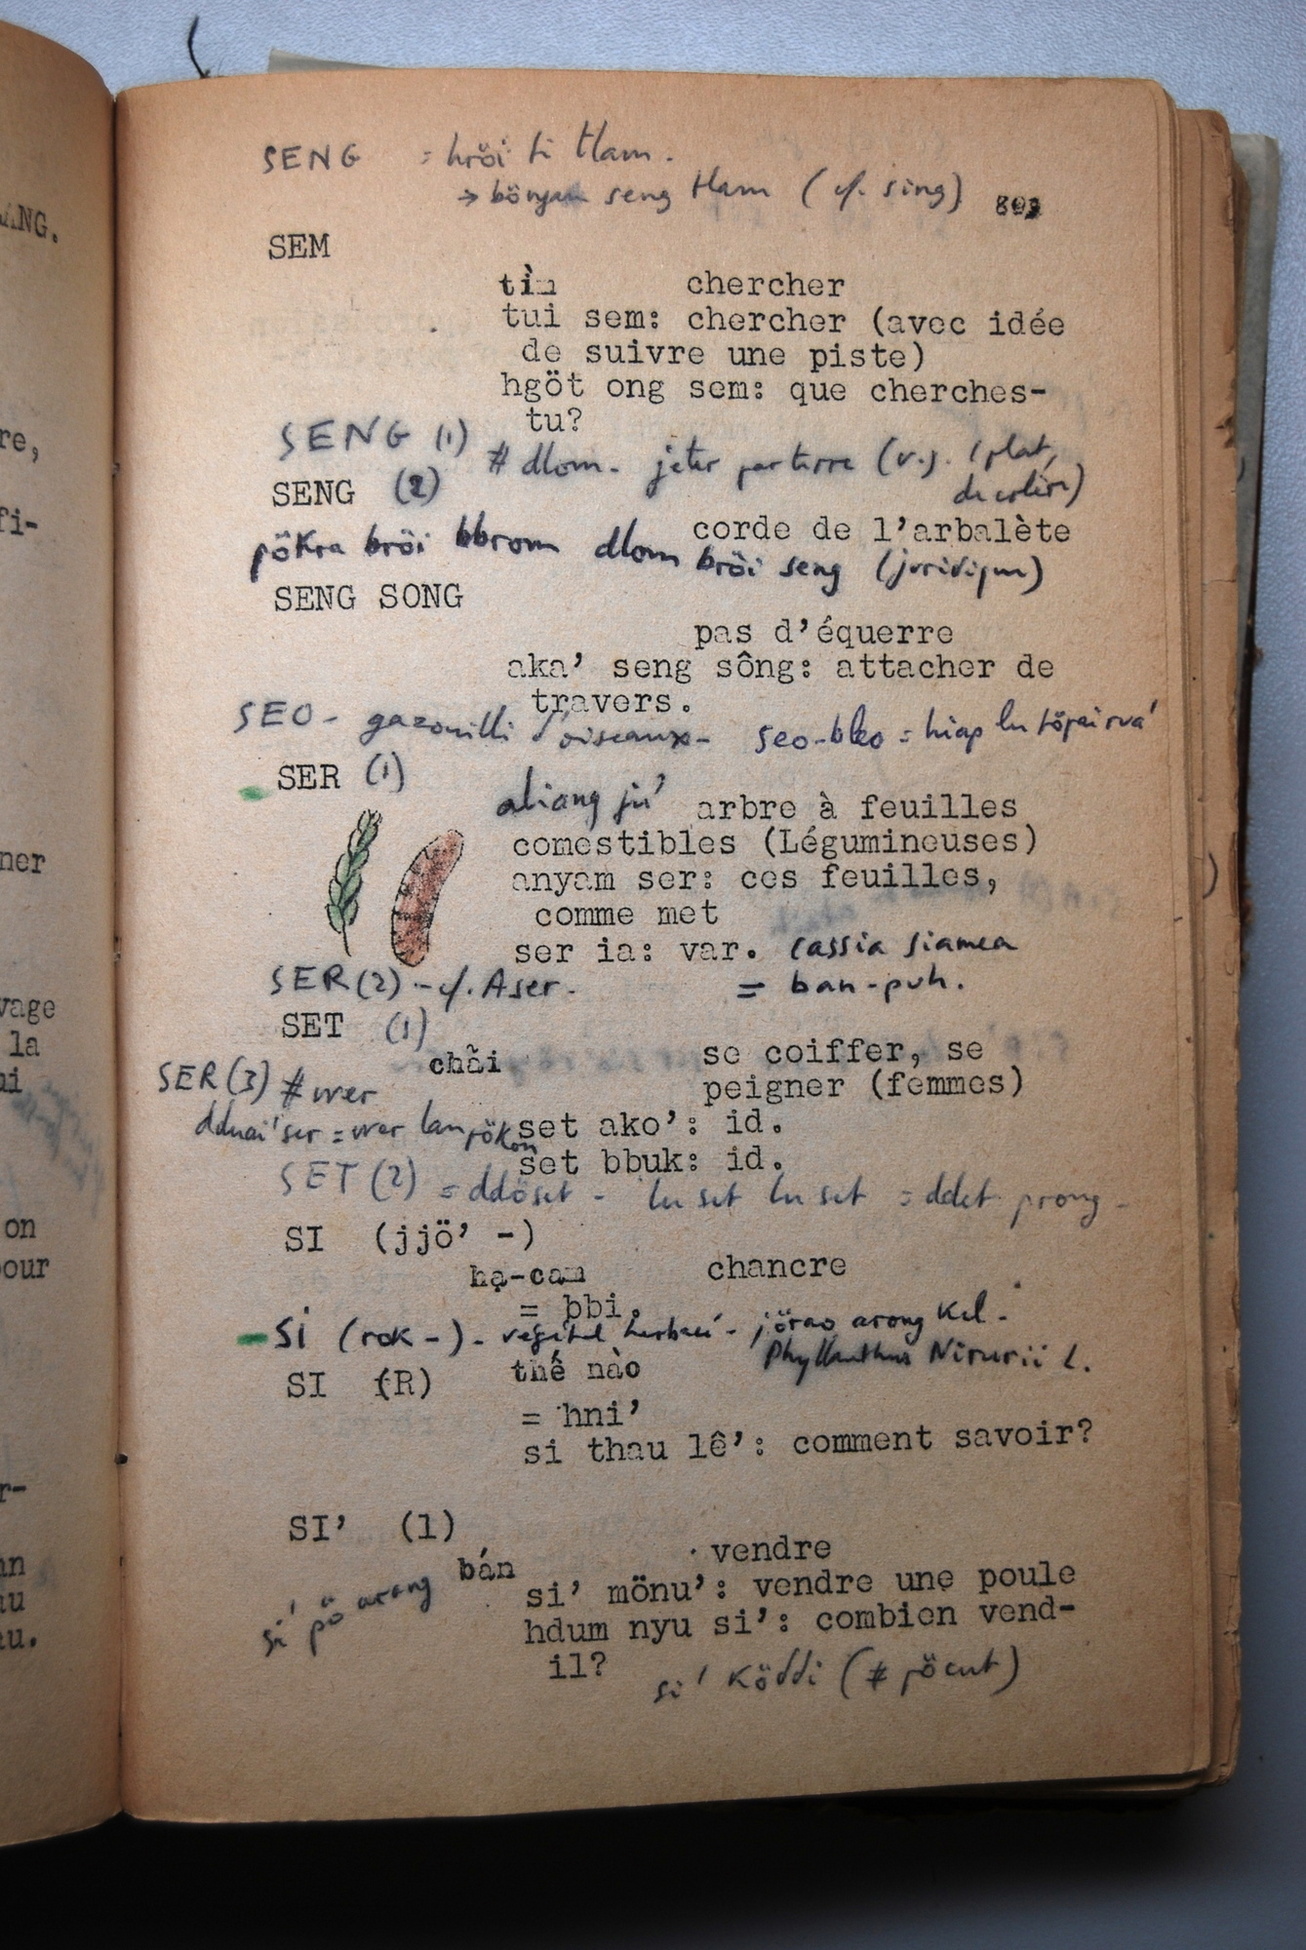 SENG = hröi ti tlam.
→ seng tlam (cf. sing)
SEM
tìm chercher
tui sem: chercher (avec idée
de suivre une piste)
hgöt ong sem: que cherches-
tu?
SENG (1) # dlom - jeter par terre (v.g. 1 plat,
de colère)
SENG (2)
corde de l'arbalète
pökra bröi bbrom dlom bröi seng (juridique)
SENG SONG
pas d'équerre
aka' seng sông: attacher de
travers.
SEO - gazouillis d'oiseaux - seo-bleo = hiap lu
SER (1)
aliang ju' arbre à feuilles
comestibles (Légumineuses)
anyam ser: ces feuilles,
comme met
ser ia: var. cassia siamea
SER (2) - cf. Aser. = ban-puh.
SET (1)
chải se coiffer, se
peigner (femmes)
SER (3) # wer
set ako': id.
dduai' ser = wer lan pökon
set bbuk: id.
SET (2) = ddöset - lu set lu set = ddet prong -
SI (jjö' -)
hạ-cam chancre
= bbi.
SI (rok -) - végétal herbacé - jörao arong Kel -
Phyllanthus Nirurii L.
SI (R) thế nào
= hni'
si thau lê': comment savoir?
SI' (1)
vendre
bán
si' pö arang
si' mönu': vendre une poule
hdum nyu si': combien vend-
il?
si' Köddi (# pöcut)
ANG.
re,
fi-
ner
vage
la
ui
on
pour
r-
an
au
tu.